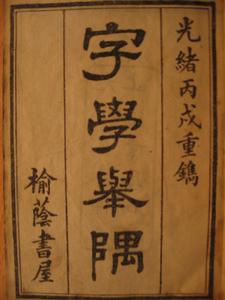 光緒丙戌重鐫
字學舉隅
榆蔭書屋